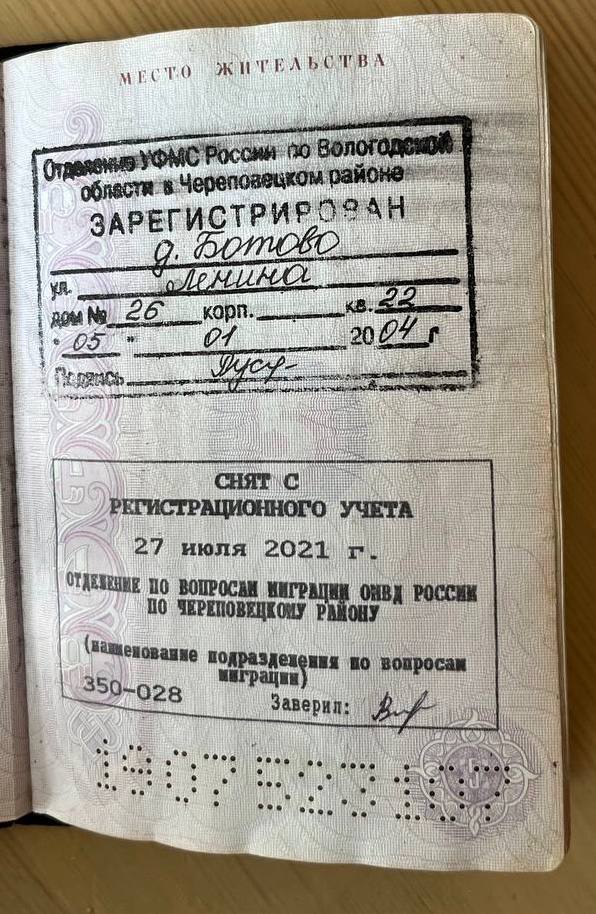 МЕСТО ЖИТЕЛЬСТВА
Отделение УФМС России по Вологодской
области в Череповецком районе
ЗАРЕГИСТРИРОВАН
д. Ботово
ул. Ленина
дом № 26 корп. кв. 22
" 05 " 01 2004 г
Подпись
СНЯТ С
РЕГИСТРАЦИОННОГО УЧЕТА
27 июля 2021 г.
ОТДЕЛЕНИЕ ПО ВОПРОСАМ МИГРАЦИИ ОМВД РОССИИ
ПО ЧЕРЕПОВЕЦКОМУ РАЙОНУ
(наименование подразделения по вопросам
миграции)
350-028 Заверил:
1907 523107